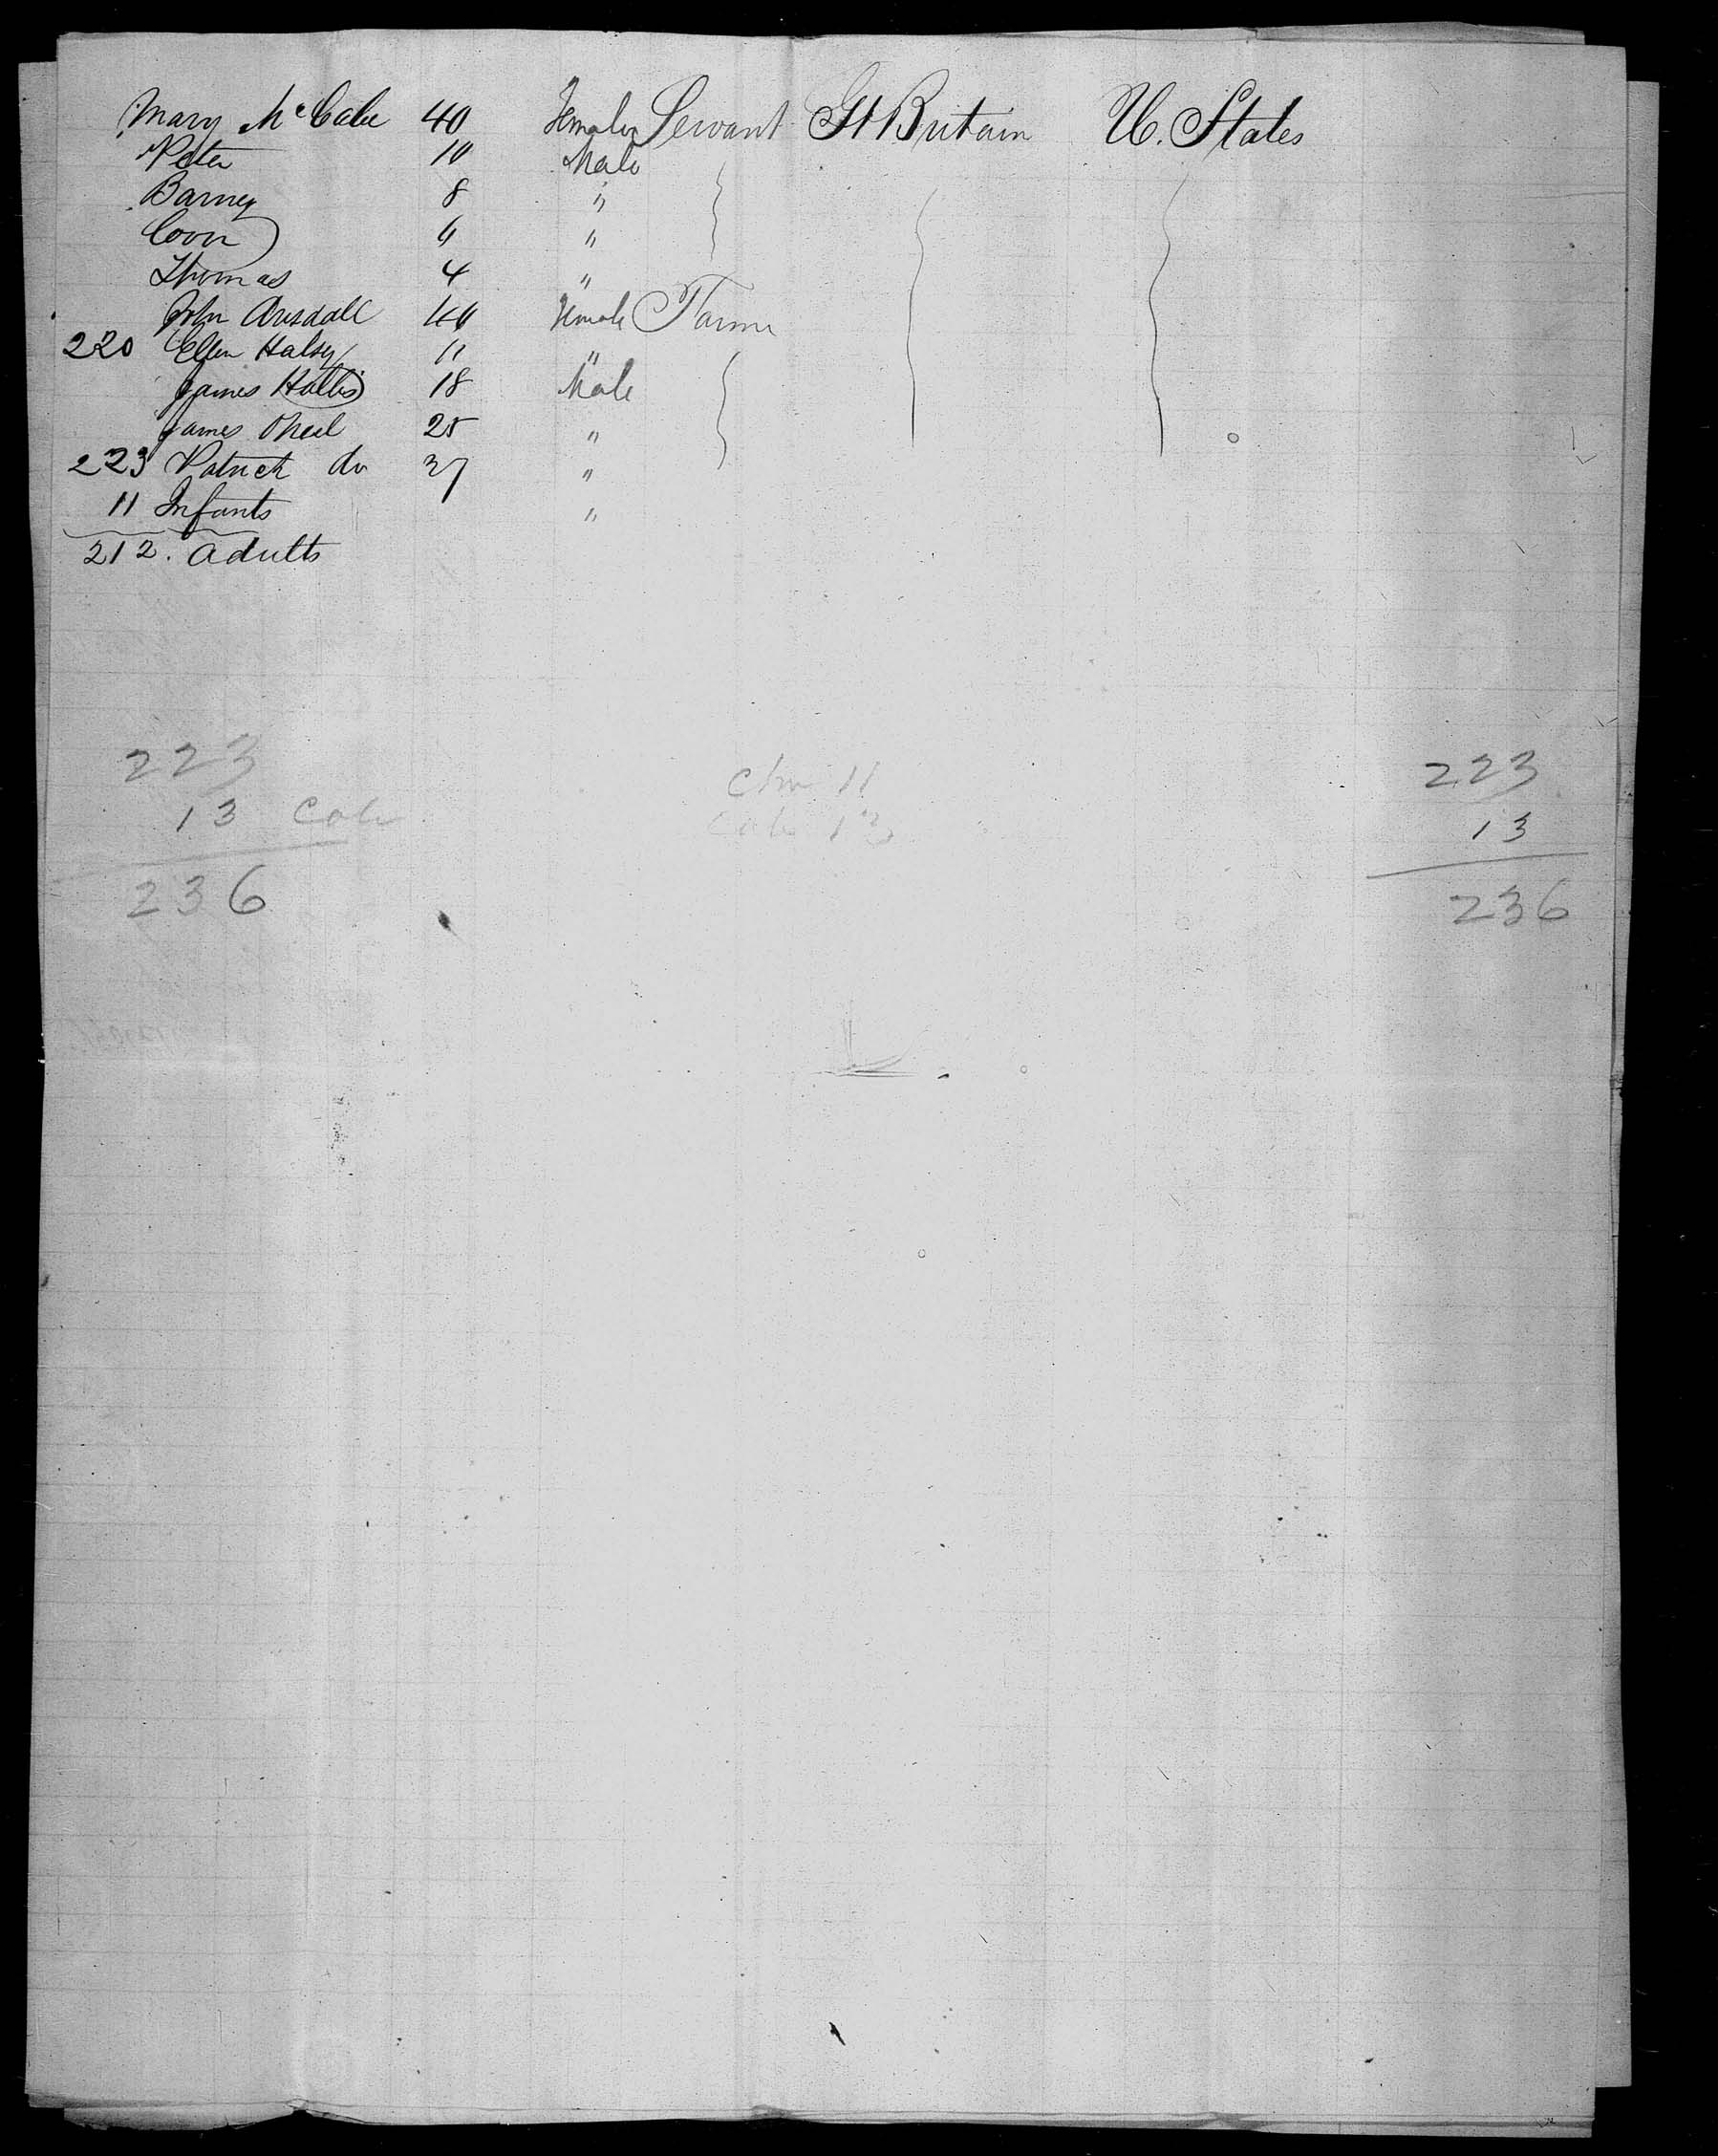 Mary McCabe 40 Female Servant Gt Britain U. States
Peter 10 Male
Barney 8 "
Coon 6 "
Thomas 4 "
John 44 Female Farmer
220 Ellen Halsey 11 "
James 18 Male
James 25 "
223 Patrick do 27 "
11 Infants "
212. Adults
223 223
13 Cab 11 13
Cab 13
236 236